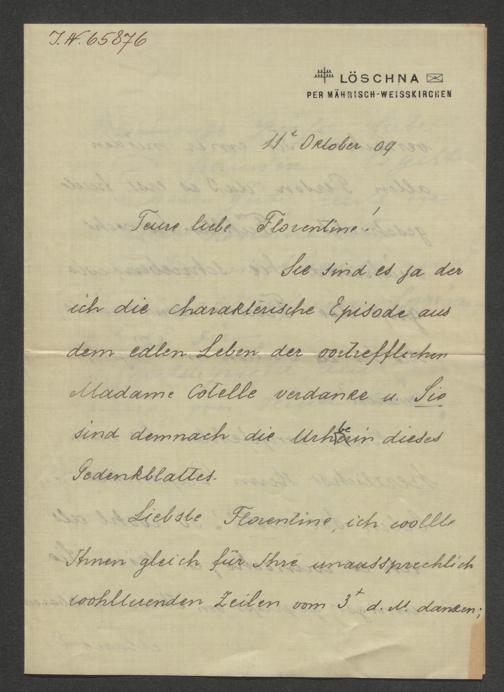 J.N. 65876
LÖSCHNA
PER MÄHRISCH-WEISSKIRCHEN
11t Oktober 09
Teure liebe Florentine!
Sie sind es ja der
ich die charakterische Episode aus
dem edlen Leben der vortrefflichen
Madame Cotelle verdanke u. Sie
sind demnach die Urheberin dieses
Gedenkblattes.
Liebste Florentine, ich wollte
Ihnen gleich für Ihre unaussprechlich
wohlthuenden Zeilen vom 3t d. M danken;